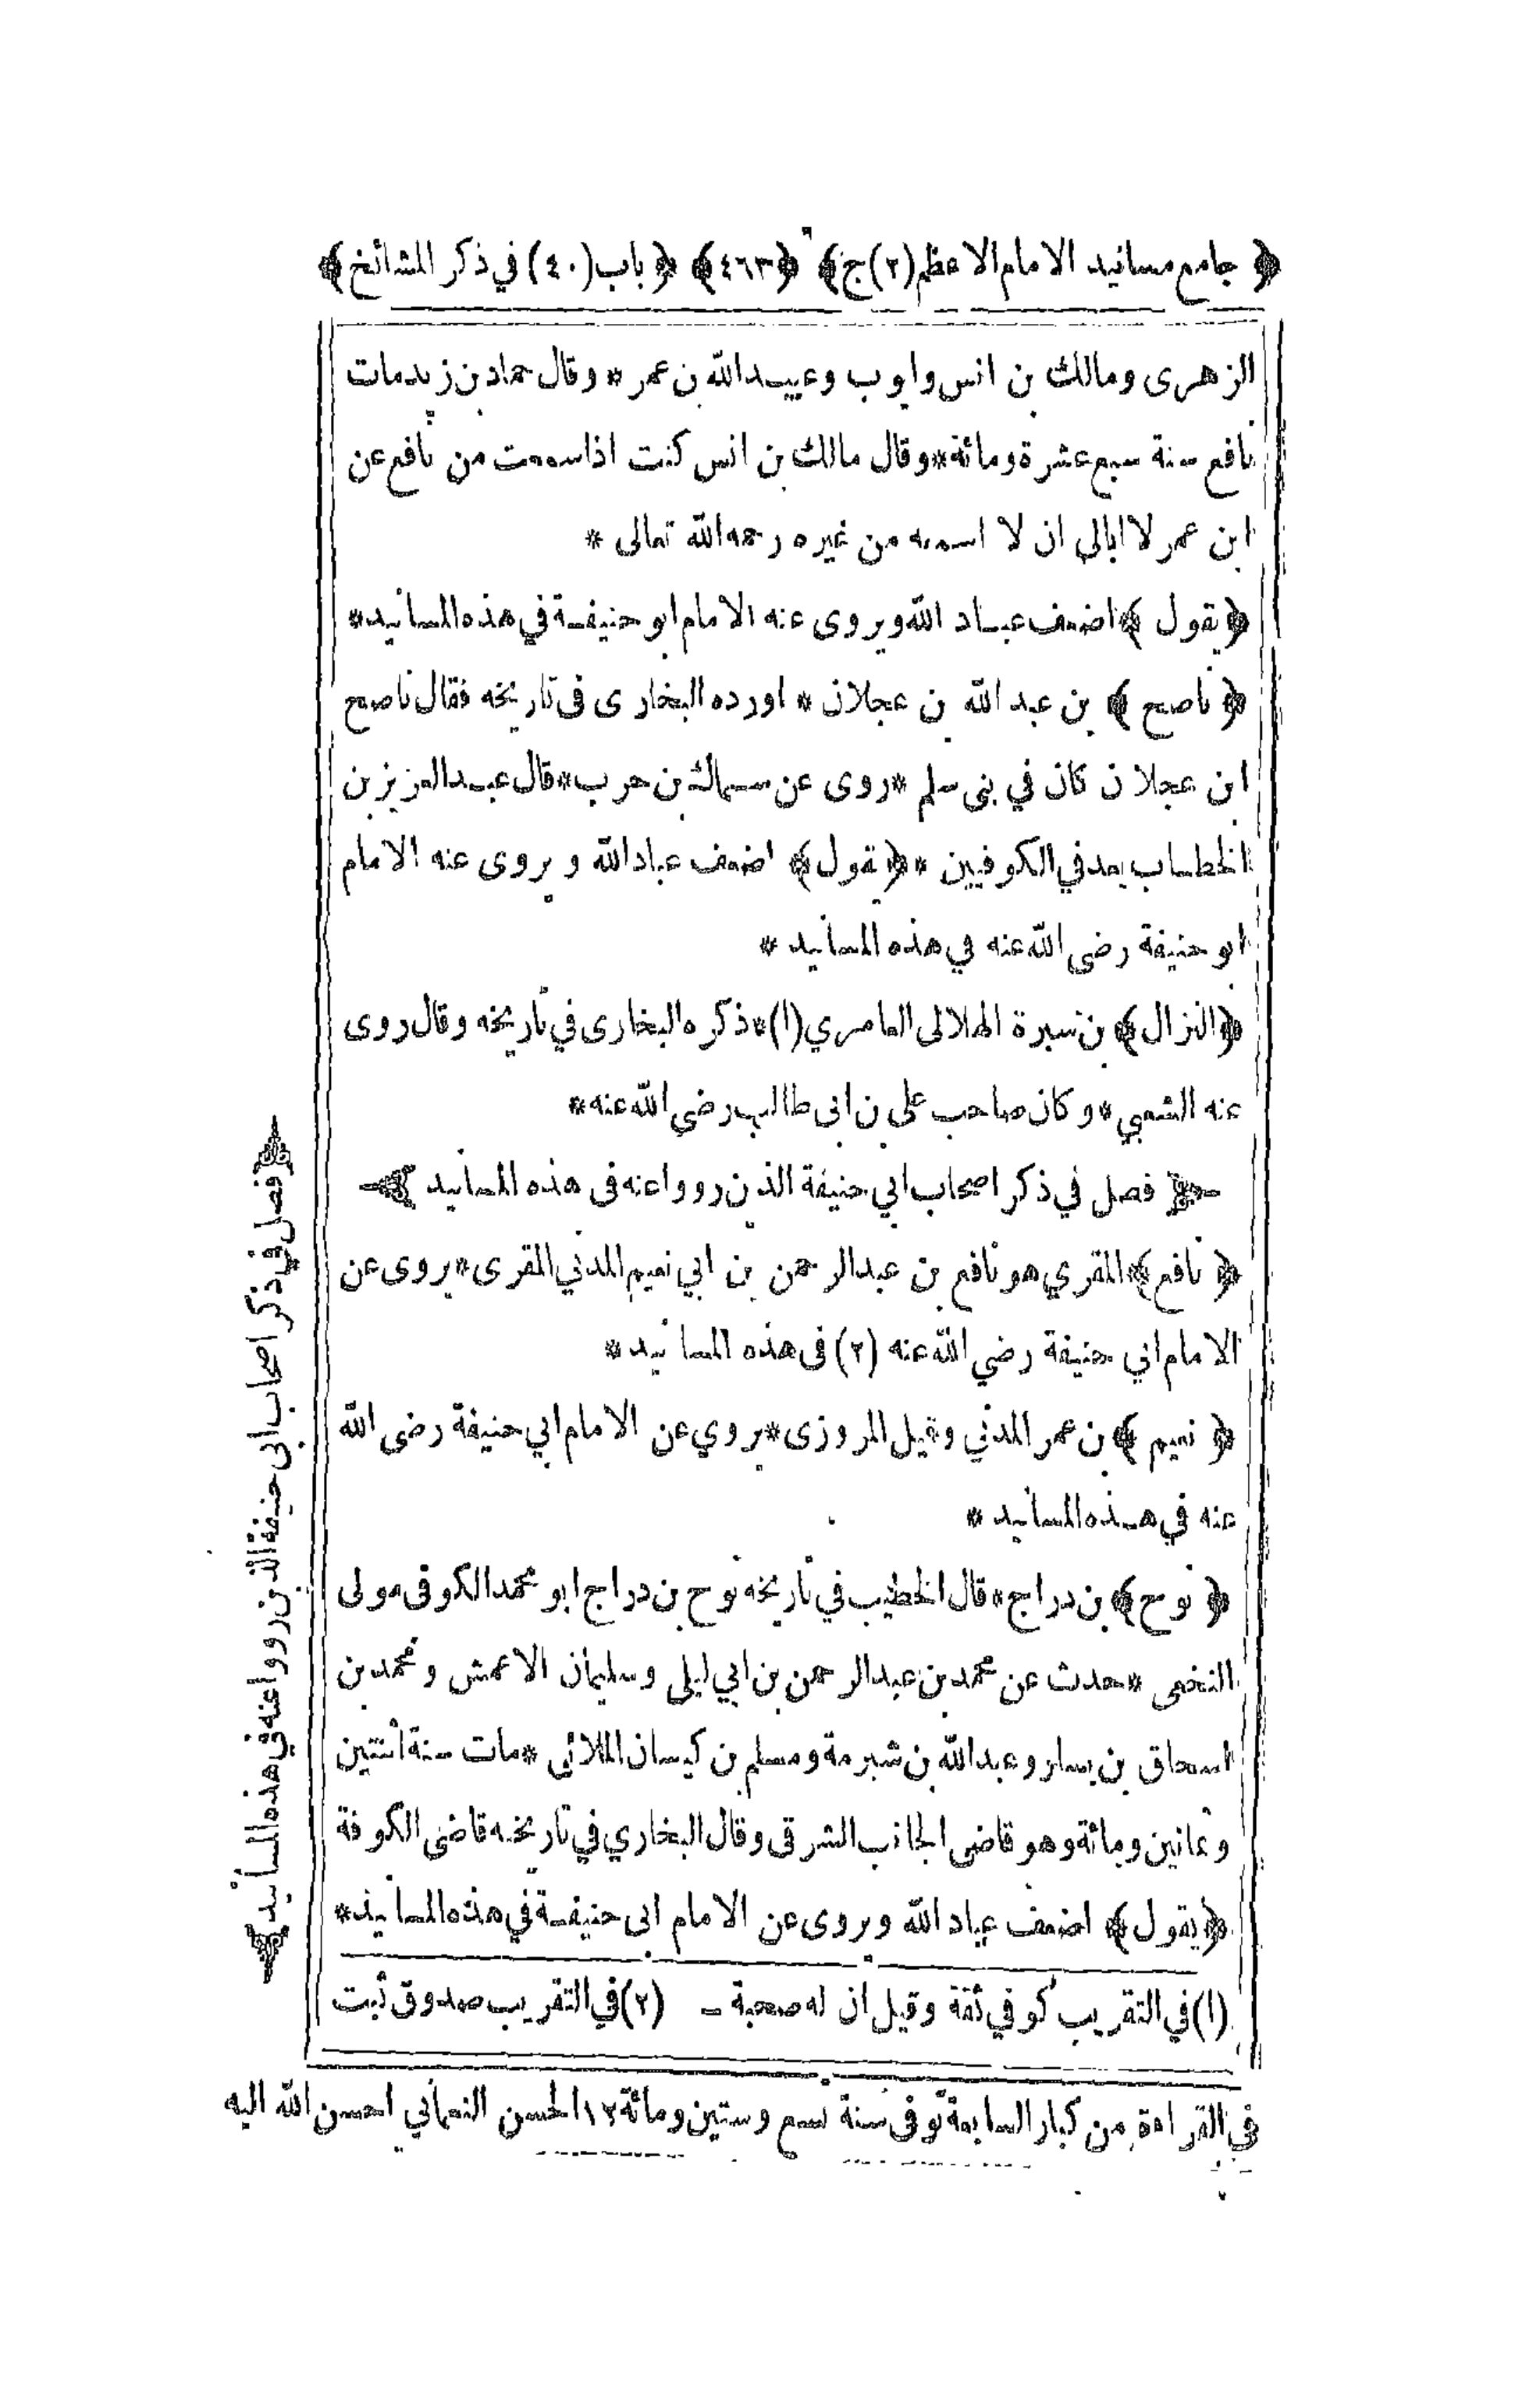 ﴿ جامع مسانيد الامام الاعظم (٢) ج﴾ ﴿٤٦٣﴾ ﴿ باب (٤٠) في ذكر المشائخ ﴾
الزهرى ومالك بن انس وايوب وعبيد الله بن عمر * وقال حماد بن زيد مات
نافع سنة سبع عشرة ومائة * وقال مالك بن انس كنت اذا سمعت من نافع عن
ابن عمر لا ابالى ان لا اسمعه من غيره رحمه الله تعالى *
﴿ يقول ﴾ اضعف عباد الله ويروى عنه الامام ابو حنيفة في هذه المسانيد *
﴿ ناصح ﴾ بن عبد الله بن عجلان * اورده البخارى فى تاريخه فقال ناصح
ابن عجلان كان في بنى سلم * روى عن سماك بن حرب * قال عبد العزيز بن
الخطاب يعد في الكوفيين * ﴿ يقول ﴾ اضعف عباد الله و يروى عنه الامام
ابو حنيفة رضى الله عنه في هذه المسانيد *
﴿ النزال ﴾ بن سبرة الهلالى العامري (١) * ذكره البخارى في تاريخه وقال روى
عنه الشعبي * وكان صاحب على بن ابى طالب رضي الله عنه *
فصل في ذكر اصحاب ابي حنيفة الذين رووا عنه فى هذه المسانيد
﴿ نافع ﴾ المقري هو نافع بن عبد الرحمن بن ابي نعيم المدني المقرى * يروى عن
الامام ابي حنيفة رضي الله عنه (٢) فى هذه المسانيد *
﴿ نعيم ﴾ بن عمر المدني وقيل المروزى * يروي عن الامام ابي حنيفة رضى الله
عنه في هذه المسانيد *
﴿ نوح ﴾ بن دراج * قال الخطيب في تاريخه نوح بن دراج ابو محمد الكوفى مولى
النخعى * حدث عن محمد بن عبد الرحمن بن ابي ليلى وسليمان الاعمش ومحمد بن
اسحاق بن يسار وعبد الله بن شبرمة ومسلم بن كيسان الملائى * مات سنة اثنتين
وثمانين ومائة وهو قاضى الجانب الشرقى وقال البخاري في تاريخه قاضى الكوفة
﴿ يقول ﴾ اضعف عباد الله ويروى عن الامام ابى حنيفة في هذه المسانيد *
(١) في التقريب كوفي ثقة وقيل ان له صحبة - (٢) في التقريب صدوق ثبت
في القراءة من كبار السابعة توفى سنة تسع وستين ومائة ١٢ الحسن النعماني احسن الله اليه
فصل في ذكر اصحاب ابى حنيفة الذين رووا عنه في هذه المسانيد